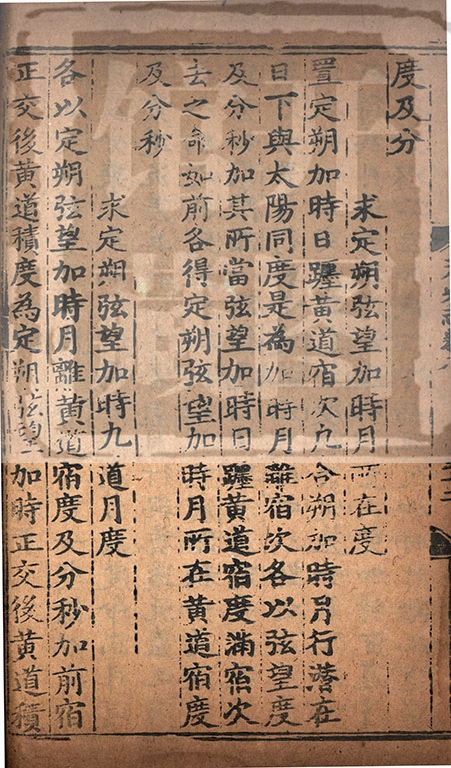 度及分
求定朔弦望加時月所在度
置定朔加時日躔黃道宿次凡合朔加時月行潛在
日下與太陽同度是為加時月離宿次各以弦望度
及分秒加其所當弦望加時日躔黃道宿度滿宿次
去之命如前各得定朔弦望加時月所在黃道宿度
及分秒
求定朔弦望加時九道月度
各以定朔弦望加時月離黃道宿度及分秒加前宿
正交後黃道積度為定朔弦望加時正交後黃道積